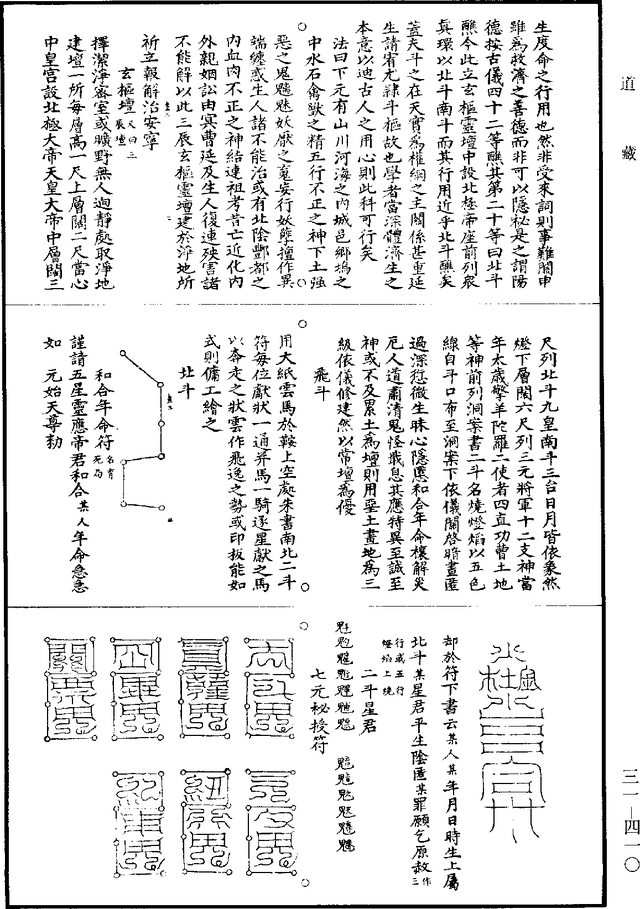 道藏
三一—四一〇
生度命之行用也然非受來詞則事難關申
雖為救濟之善德而非可以隱祕是之謂陽
德按古儀四十二等醮其第二十等曰北斗
醮今此立玄樞靈壇中設北極帝座前列眾
真環以北斗南斗而其行用近乎北斗醮矣
蓋夫斗之在天實為權綱之主關係甚重延
生請宥尤隸斗樞故也學者當深體濟生之
本意以迪古人之用心則此科可行矣
法曰下元有山川河海之內城邑鄉塢之
中水石禽獸之精五行不正之神下土強
惡之鬼魑魅妖厭之寃妄行妖孽擅作異
端纏或生人諸不能治或有北陰酆都之
內血肉不正之神結連祖考昔亡近化內
外親姻訟由冥曹延及生人復連殃害諸
不能解以此三辰玄樞靈壇建於淨地所
祈立報解治安寧
玄樞壇又曰三辰壇
擇潔淨密室或曠野無人迥靜處取淨地
建壇一所每層高一尺上層闊二尺當心
中皇宮設北極大帝天皇大帝中層闊三
尺列北斗九皇南斗三台日月皆依象然
燈下層闊六尺列三元將軍十二支神當
年太歲擎羊陀羅二使者四直功曹土地
等神前列洞案書二斗名燒燈焰以五色
線自斗口布至洞案下依儀關啓瞻晝匿
過深愆微生昧心隱慝和合年命禳解災
厄人道肅清鬼怪戢息其應特異至誠至
神或不及累土為壇則用堊土畫地為三
級依儀修建然以常壇為優
飛斗
用大紙雲馬於鞍上空處朱書南北二斗
符每位獻狀一通并馬一騎逐星獻之馬
以奔走之狀雲作飛逸之勢或印板能如
式則傭工繪之
北斗
和合年命符
謹請五星靈應帝君和合某人年命急急
如 元始天尊勑
却於符下書云某人某年月日時生上屬
北斗某星君平生陰匿某罪願乞原赦作三
行或五行燈焰上燒
二斗星君
魁𩲃䰢魓䰡魒
七元祕授符